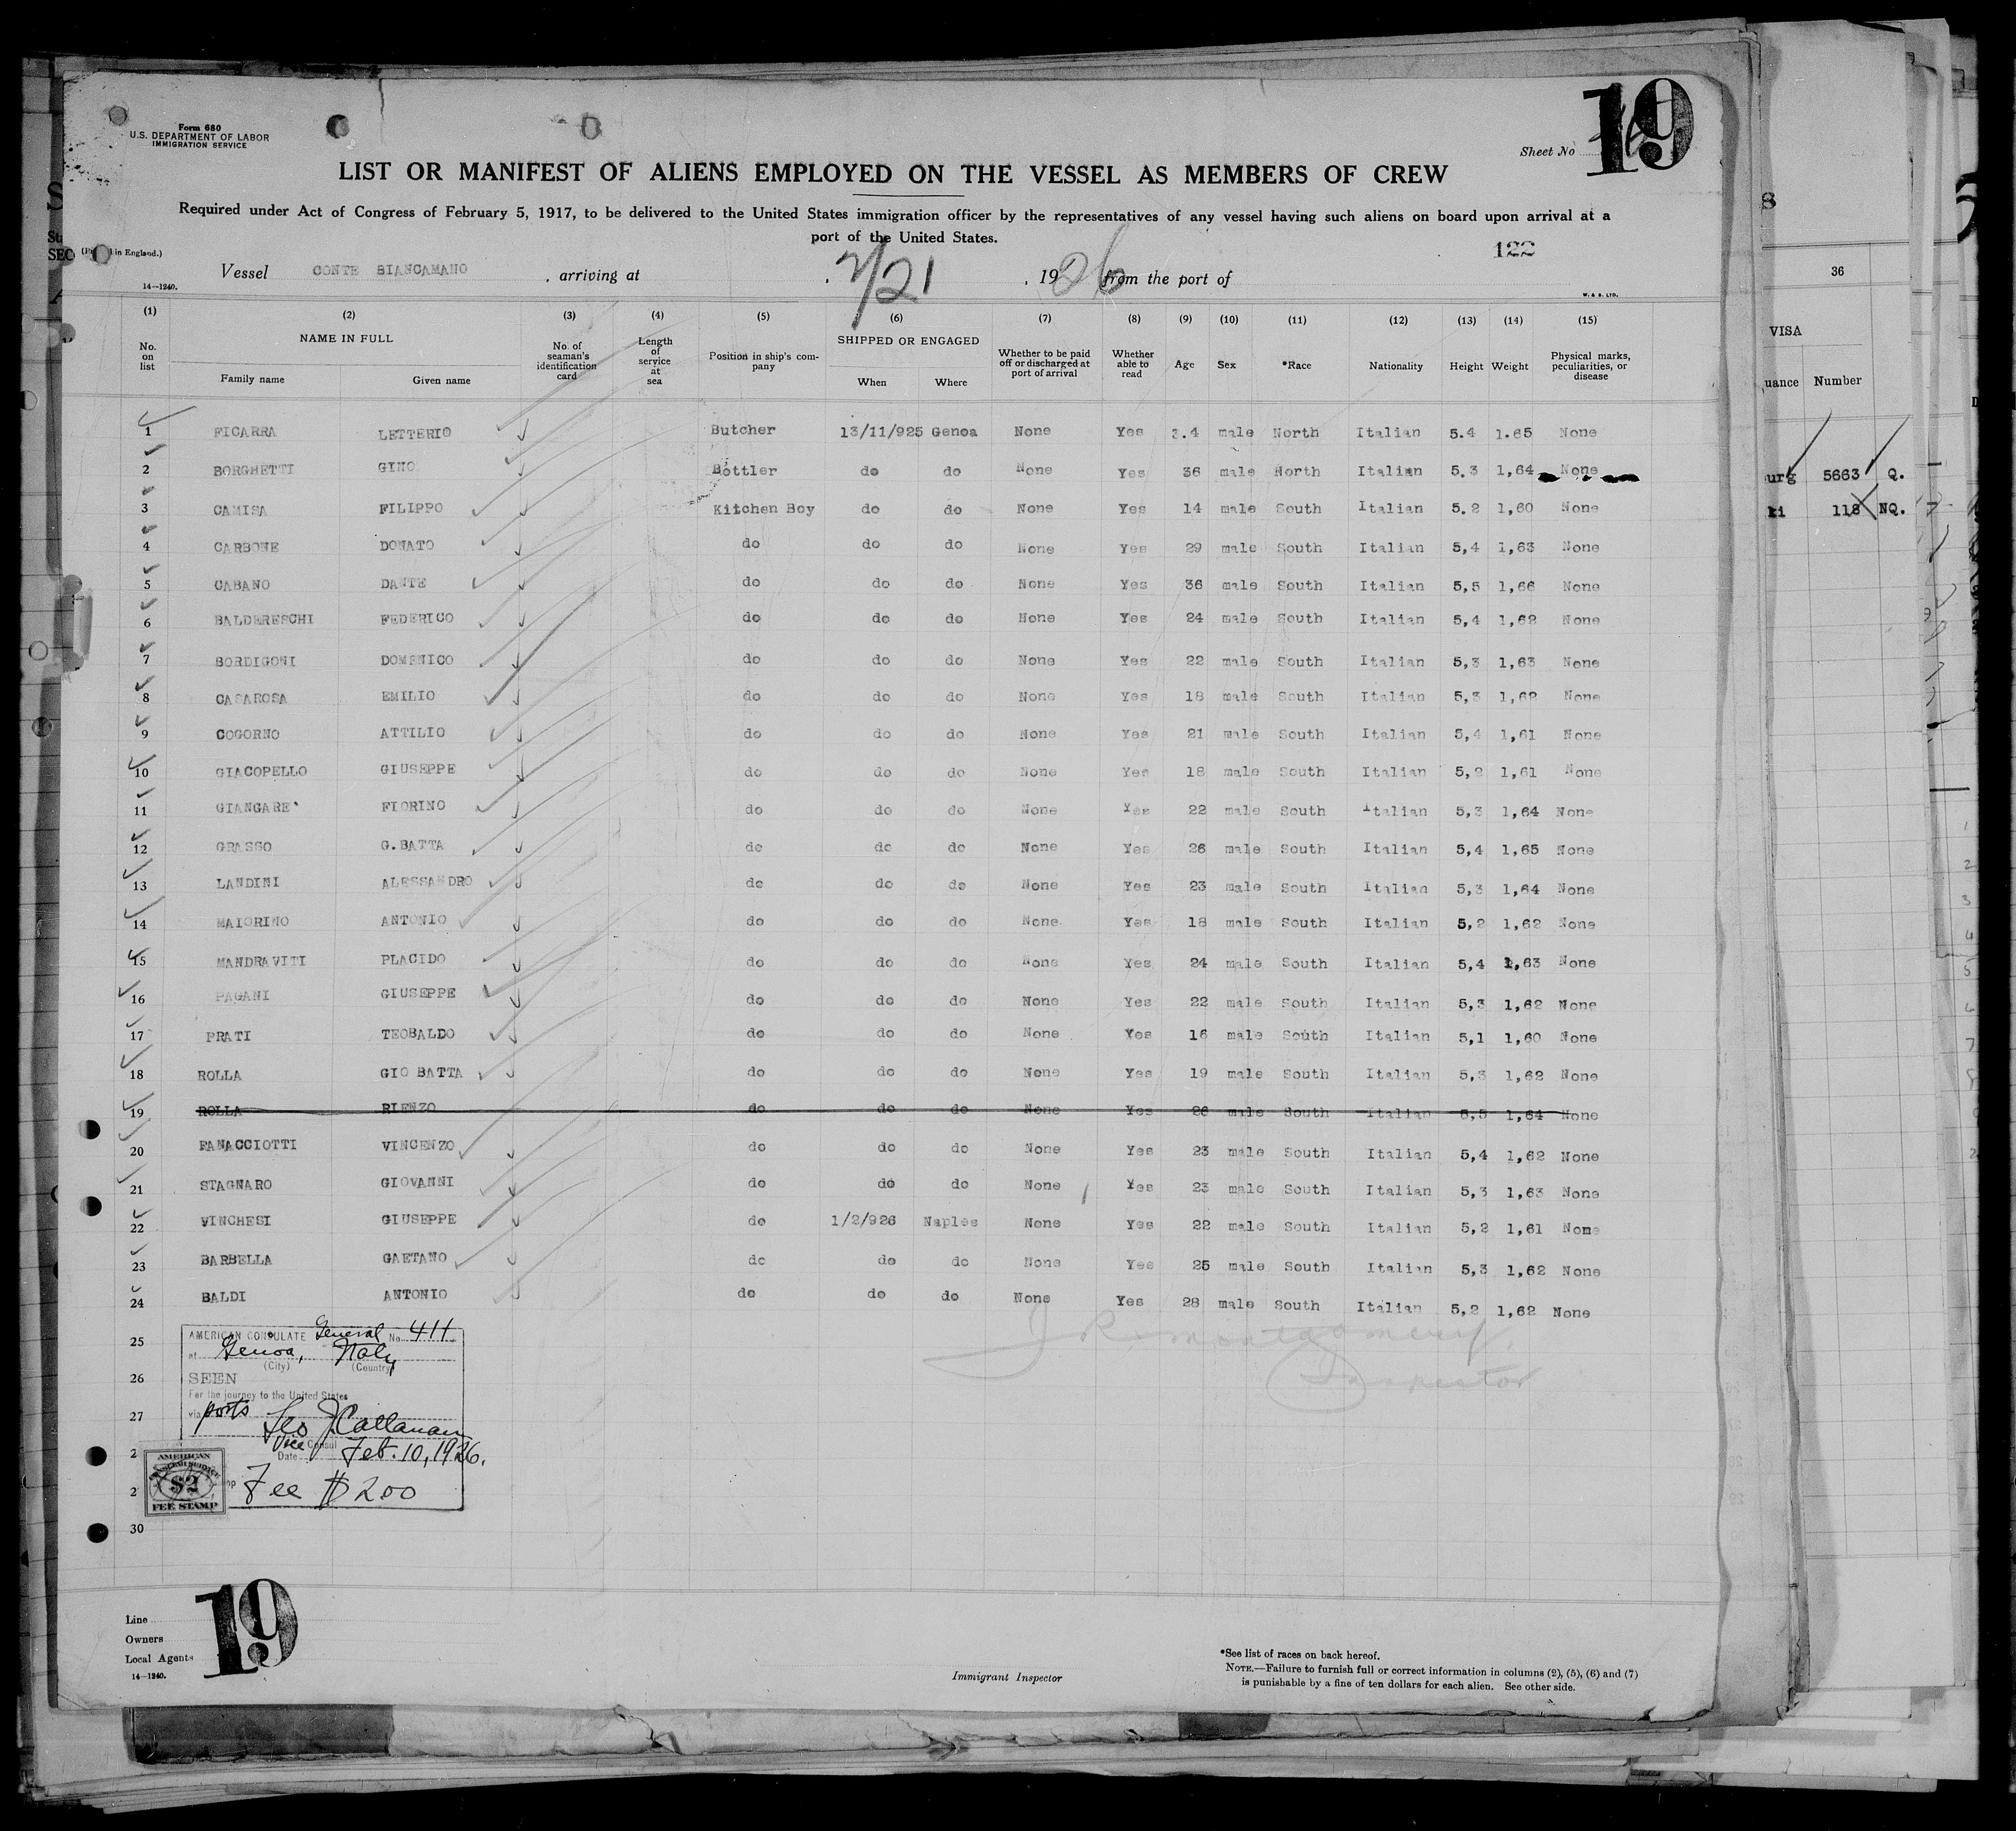 19
Form 680
U.S. DEPARTMENT OF LABOR
IMMIGRATION SERVICE
Sheet No
LIST OR MANIFEST OF ALIENS EMPLOYED ON THE VESSEL AS MEMBERS OF CREW
Required under Act of Congress of February 5, 1917, to be delivered to the United States immigration officer by the representatives of any vessel having such aliens on board upon arrival at a
port of the United States.
122
in England.)
Vessel CONTE BIANCAMANO , arriving at , 2/21 , 1926 from the port of
14—1240.
W. & S. LTD.
(1) (2) (3) (4) (5) (6) (7) (8) (9) (10) (11) (12) (13) (14) (15)
No. on list NAME IN FULL Family name Given name No. of seaman's identification card Length of service at sea Position in ship's company SHIPPED OR ENGAGED When Where Whether to be paid off or discharged at port of arrival Whether able to read Age Sex *Race Nationality Height Weight Physical marks, peculiarities, or disease
1 FICARRA LETTERIO Butcher 13/11/925 Genoa None Yes 3.4 male North Italian 5.4 1.65 None
2 BORGHETTI GINO Bottler do do None Yes 36 male North Italian 5.3 1,64 None
3 CAMISA FILIPPO Kitchen Boy do do None Yes 14 male South Italian 5.2 1,60 None
4 CARBONE DONATO do do do None Yes 29 male South Italian 5,4 1,63 None
5 CABANO DANTE do do do None Yes 36 male South Italian 5,5 1,66 None
6 BALDERESCHI FEDERICO do do do None Yes 24 male South Italian 5,4 1,62 None
7 BORDIGONI DOMENICO do do do None Yes 22 male South Italian 5,3 1,63 None
8 CASAROSA EMILIO do do do None Yes 18 male South Italian 5,3 1,62 None
9 COGORNO ATTILIO do do do None Yes 21 male South Italian 5,4 1,61 None
10 GIACOPELLO GIUSEPPE do do do None Yes 18 male South Italian 5,2 1,61 None
11 GIANGARE' FIORINO do do do None Yes 22 male South Italian 5,3 1,64 None
12 GRASSO G.BATTA do do do None Yes 26 male South Italian 5,4 1,65 None
13 LANDINI ALESSANDRO do do do None Yes 23 male South Italian 5,3 1,64 None
14 MAIORINO ANTONIO do do do None Yes 18 male South Italian 5,2 1,62 None
15 MANDRAVITI PLACIDO do do do None Yes 24 male South Italian 5,4 1,63 None
16 PAGANI GIUSEPPE do do do None Yes 22 male South Italian 5,3 1,62 None
17 PRATI TEOBALDO do do do None Yes 16 male South Italian 5,1 1,60 None
18 ROLLA GIO BATTA do do do None Yes 19 male South Italian 5,3 1,62 None
19 ROLLA RIENZO do do do None Yes 26 male South Italian 5,5 1,64 None
20 PANACCIOTTI VINCENZO do do do None Yes 23 male South Italian 5,4 1,62 None
21 STAGNARO GIOVANNI do do do None Yes 23 male South Italian 5,3 1,63 None
22 VINCHESI GIUSEPPE do 1/2/926 Naples None Yes 22 male South Italian 5,2 1,61 None
23 BARBELLA GAETANO do do do None Yes 25 male South Italian 5,3 1,62 None
24 BALDI ANTONIO do do do None Yes 28 male South Italian 5,2 1,62 None
25
26
27
2
2
30
J R Montgomery.
Inspector
AMERICAN CONSULATE General No. 411
at Genoa, Italy
(City) (Country)
SEEN
For the journey to the United States
via ports
Leo J. Callanan
Vice Consul
Date Feb. 10, 1926.
Fee $2.00
AMERICAN
$2
FEE STAMP
19
Line
Owners
Local Agents
14—1240.
Immigrant Inspector
*See list of races on back hereof.
NOTE.—Failure to furnish full or correct information in columns (2), (5), (6) and (7)
is punishable by a fine of ten dollars for each alien. See other side.
36
VISA
uance Number
urg 5663 Q.
ki 118 NQ.